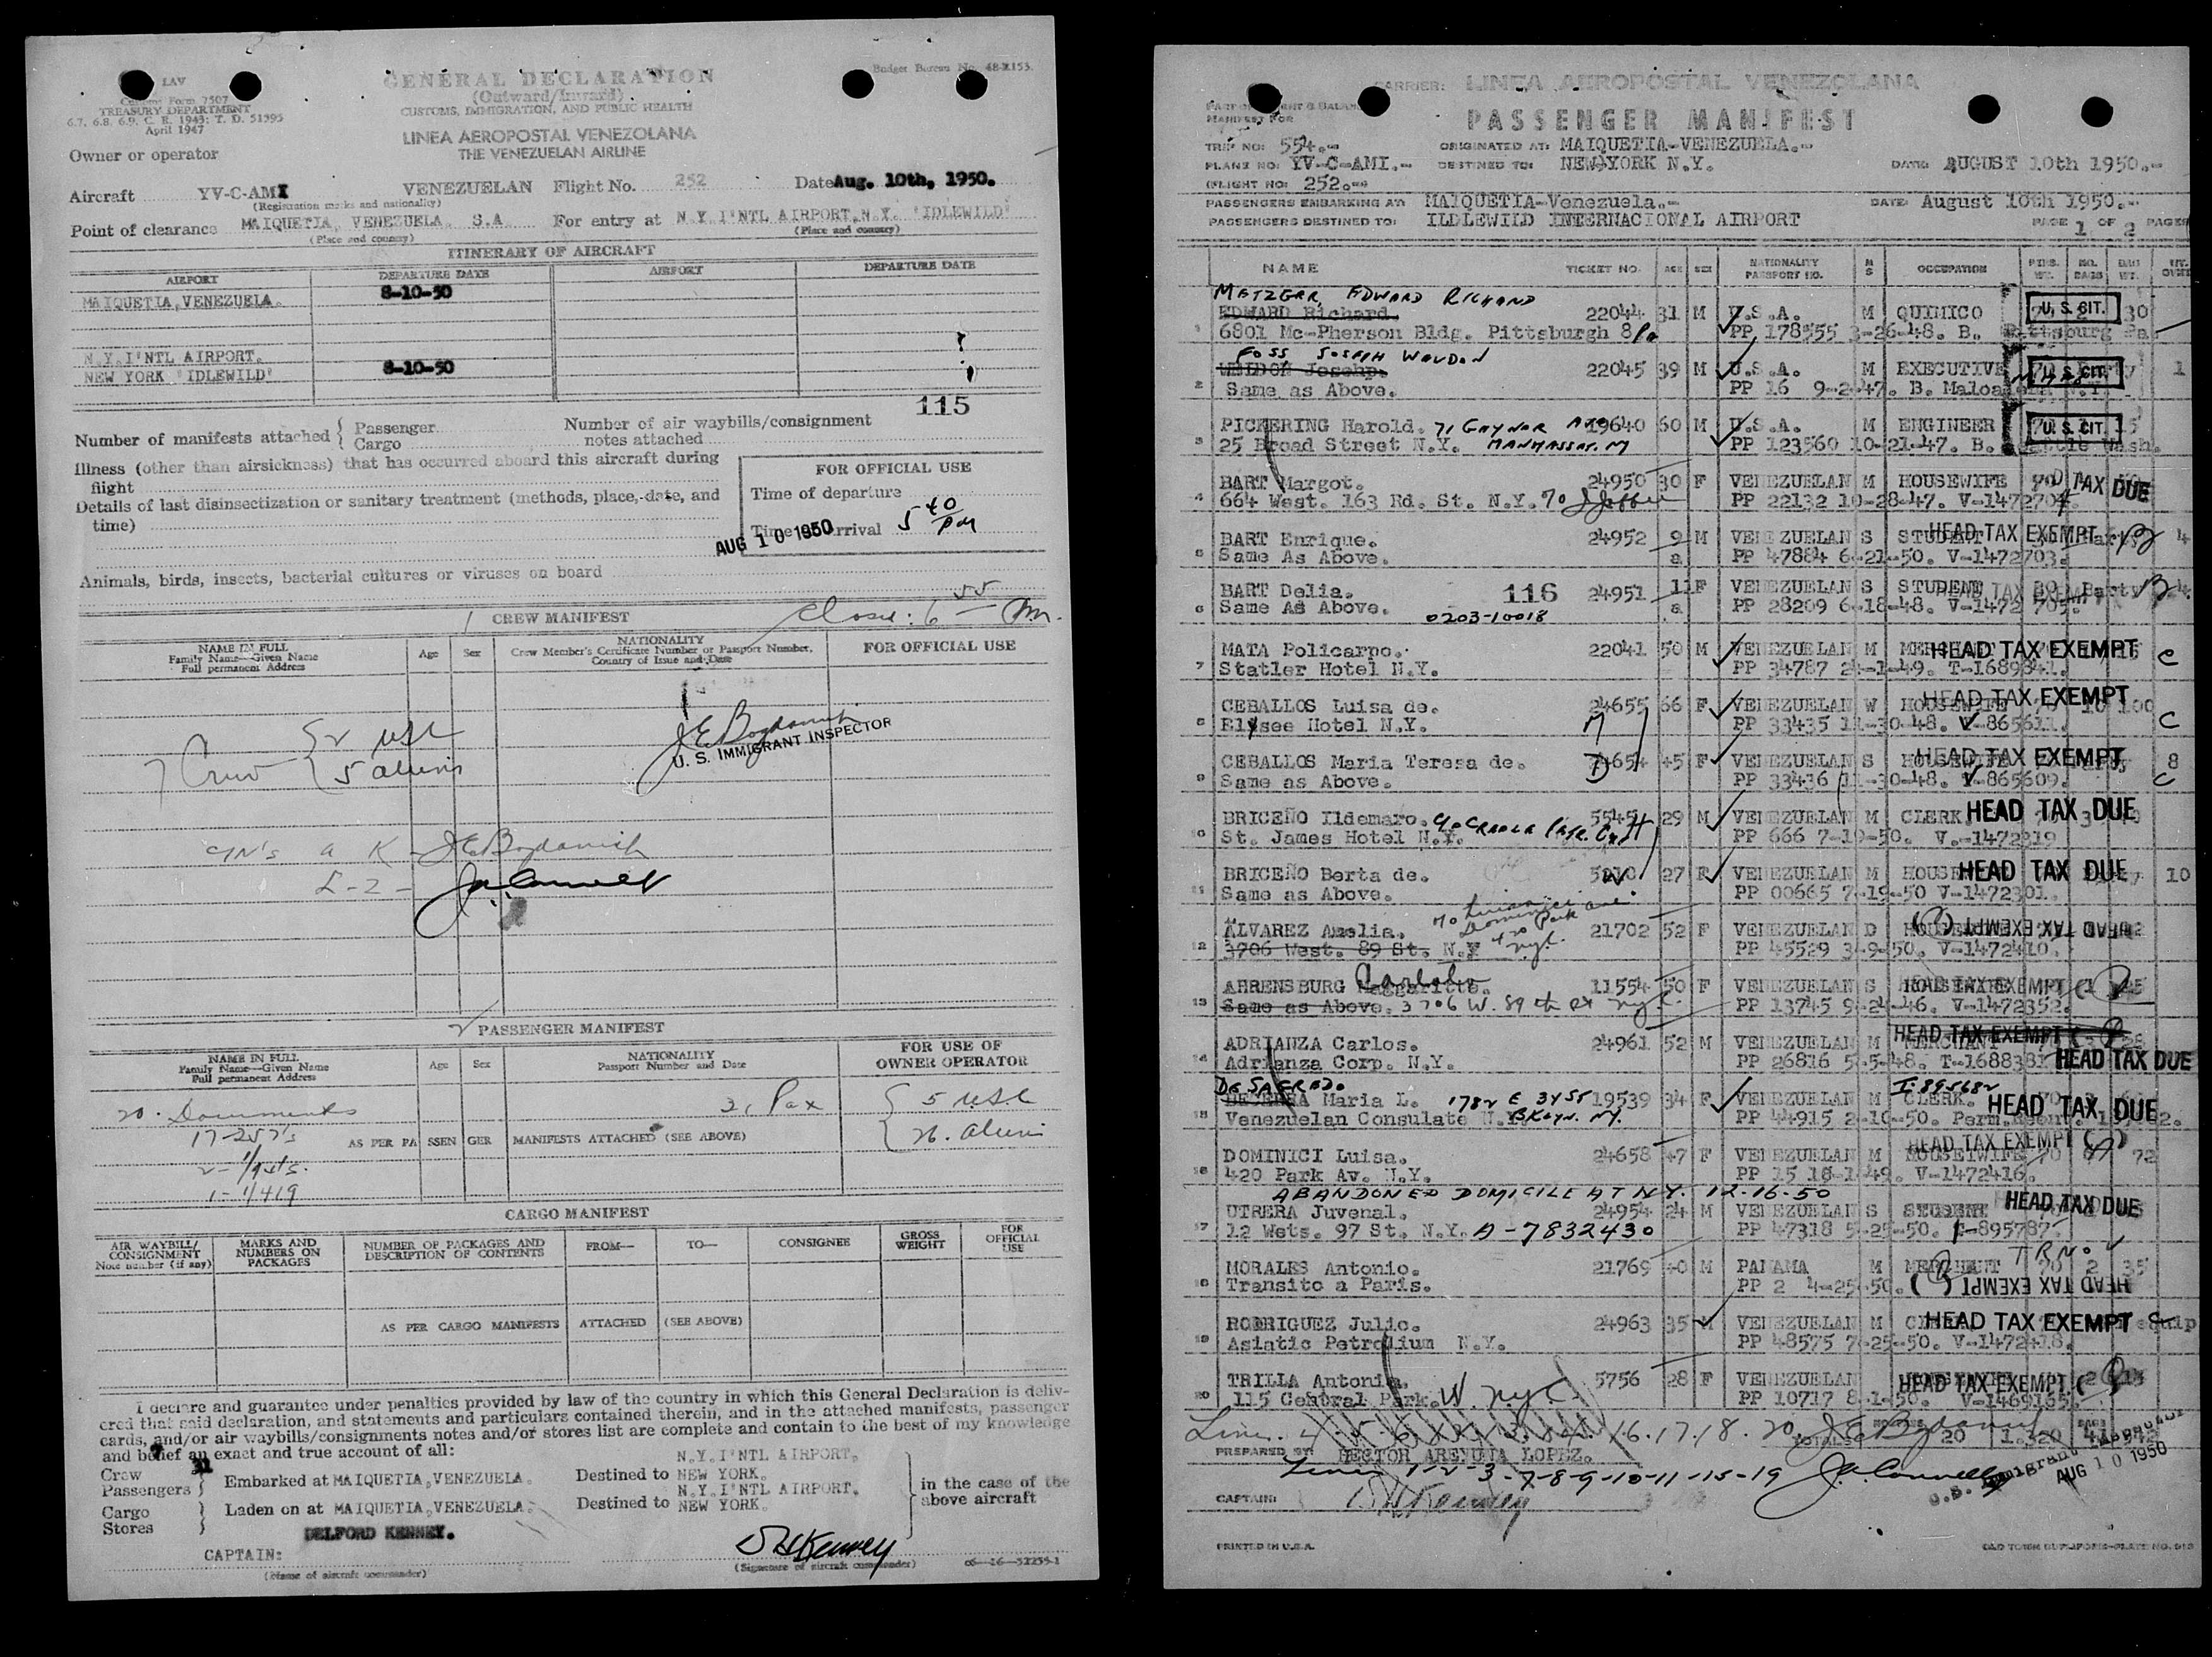 LAV
Customs Form 7507
TREASURY DEPARTMENT
6.7, 6.8, 6.9, C. R. 1943: T. D. 51595
April 1947
Budget Bureau No. 48-R153.
GENERAL DECLARATION
(Outward/Inward)
CUSTOMS, IMMIGRATION, AND PUBLIC HEALTH
LINEA AEROPOSTAL VENEZOLANA
THE VENEZUELAN AIRLINE
Owner or operator
Aircraft YV-C-AMI VENEZUELAN Flight No. 252 Date Aug. 10th, 1950.
(Registration marks and nationality)
Point of clearance MAIQUETIA, VENEZUELA. S.A. For entry at N.Y.I'NTL AIRPORT,N.Y. 'IDLEWILD'
(Place and country) (Place and country)
ITINERARY OF AIRCRAFT
AIRPORT DEPARTURE DATE AIRPORT DEPARTURE DATE
MAIQUETIA,VENEZUELA. 8-10-50
N.Y.I'NTL AIRPORT.
NEW YORK 'IDLEWILD' 8-10-50
115
Number of manifests attached { Passenger Cargo
Number of air waybills/consignment notes attached
Illness (other than airsickness) that has occurred aboard this aircraft during
flight
Details of last disinsectization or sanitary treatment (methods, place, date, and
time)
FOR OFFICIAL USE
Time of departure
Time of arrival 5 40 PM
AUG 10 1950
Animals, birds, insects, bacterial cultures or viruses on board
Closed: 6 55 Pm.
1 CREW MANIFEST
NAME IN FULL
Family Name—Given Name
Full permanent Address
Age Sex
NATIONALITY
Crew Member's Certificate Number or Passport Number,
Country of Issue and Date
FOR OFFICIAL USE
7 Crew { 2 USC
5 aliens
J E Bogdanich
U. S. IMMIGRANT INSPECTOR
J E Bogdanich
L-2-
2 PASSENGER MANIFEST
NAME IN FULL
Family Name—Given Name
Full permanent Address
Age Sex
NATIONALITY
Passport Number and Date
FOR USE OF
OWNER OPERATOR
20. Documents
31 Pax { 5 USC
26. aliens
17-257's
AS PER PASSENGER MANIFESTS ATTACHED (SEE ABOVE)
1-I/419
CARGO MANIFEST
AIR WAYBILL/
CONSIGNMENT
Note number (if any)
MARKS AND
NUMBERS ON
PACKAGES
NUMBER OF PACKAGES AND
DESCRIPTION OF CONTENTS
FROM— TO— CONSIGNEE
GROSS
WEIGHT
FOR
OFFICIAL
USE
AS PER CARGO MANIFESTS ATTACHED (SEE ABOVE)
I declare and guarantee under penalties provided by law of the country in which this General Declaration is deliv-
ered that said declaration, and statements and particulars contained therein, and in the attached manifests, passenger
cards, and/or air waybills/consignments notes and/or stores list are complete and contain to the best of my knowledge
and belief an exact and true account of all:
Crew 7
Passengers 31 } Embarked at MAIQUETIA,VENEZUELA. Destined to N.Y.I'NTL AIRPORT. NEW YORK.
Cargo
Stores } Laden on at MAIQUETIA,VENEZUELA. Destined to N.Y.I'NTL AIRPORT. NEW YORK.
in the case of the
above aircraft
DELFORD KENNEY.
CAPTAIN:
(Name of aircraft commander)
D H Kenney
(Signature of aircraft commander)
CARRIER: LINEA AEROPOSTAL VENEZOLANA
MANIFEST FOR
PASSENGER MANIFEST
TRIP NO: 554.- ORIGINATED AT: MAIQUETIA-VENEZUELA.-
PLANE NO: YV-C-AMI.- DESTINED TO: NEW-YORK N.Y. DATE: AUGUST 10th 1950.-
(FLIGHT NO: 252.-
PASSENGERS EMBARKING AT: MAIQUETIA-Venezuela.- DATE: August 10th 1950.-
PASSENGERS DESTINED TO: ILDLEWILD INTERNACIONAL AIRPORT PAGE 1 OF 2 PAGES
NAME TICKET NO. AGE SEX NATIONALITY PASSPORT NO. M S OCCUPATION
METZGER, EDWARD RICHARD
1 EDWARD Richard. 22044 31 M U.S.A. M QUIMICO U. S. CIT. 30
6801 Mc-Pherson Bldg. Pittsburgh 8 Pa PP 178555 3-26-48. B. Pittsburg Pa.
FOSS JOSEPH WELDON
2 WELDON Josehp. 22045 39 M U.S.A. M EXECUTIVE U. S. CIT. 1
Same as Above. PP 16 9-2-47. B.
3 PICKERING Harold. 71 GAYNOR AVE 19640 60 M U.S.A. M ENGINEER U. S. CIT. 15
25 Broad Street N.Y. MANHASSET. NY PP 123560 10-21-47. B. Wash.
4 BART Margot. 24950 30 F VENEZUELAN M HOUSEWIFE HEAD TAX DUE
664 West. 163 Rd. St. N.Y. PP 22132 10-28-47. V-1472704
5 BART Enrique. 24952 9 M VENEZUELAN S STUDENT HEAD TAX EXEMPT 4
Same As Above. a PP 47884 6-21-50. V-1472703.
6 BART Delia. 116 24951 11 F VENEZUELAN S STUDENT HEAD TAX EXEMPT
Same As Above. 0203-10018 a PP 28209 6-18-48. V-1472 705.
7 MATA Policarpo. 22041 50 M VENEZUELAN M MERCHANT HEAD TAX EXEMPT C
Statler Hotel N.Y. PP 34787 2-1-49. T-1689841.
8 CEBALLOS Luisa de. 24655 66 F VENEZUELAN W HOUSEWIFE HEAD TAX EXEMPT 100
Elysee Hotel N.Y. PP 33435 11-30-48. V-865611. C
9 CEBALLOS Maria Teresa de. 24654 45 F VENEZUELAN S HEAD TAX EXEMPT 8
Same as Above. PP 33436 11-30-48. V-865609. C
10 BRICEÑO Ildemaro. 5545 29 M VENEZUELAN M CLERK HEAD TAX DUE
St. James Hotel N.Y. PP 666 7-19-50. V.-1472319
11 BRICEÑO Berta de. 27 F VENEZUELAN M HEAD TAX DUE 10
Same as Above. PP 00665 7-19-50 V-1472301.
12 ALVAREZ Amelia. 420 Park Ave 21702 52 F VENEZUELAN D HEAD TAX EXEMPT
3706 West. 89 St. N.Y nyc. PP 45529 3-9-50. V-1472410.
13 AHRENSBURG Margaritte. 11554 50 F VENEZUELAN S HEAD TAX EXEMPT
Same as Above. 3706 W. 89th St nyc. PP 13745 9-24-46. V-1472352.
14 ADRIANZA Carlos. 24961 52 M VENEZUELAN M MERCHANT HEAD TAX EXEMPT
Adrianza Corp. N.Y. PP 26816 5-5-48. T-1688381 HEAD TAX DUE
15 Maria L. 1782 E 34 ST 19539 34 F VENEZUELAN M CLERK. I-895682
Venezuelan Consulate N.Y. BKLYN. NY. PP 44915 2-10-50. HEAD TAX DUE
16 DOMINICI Luisa. 24658 47 F VENEZUELAN M HOUSEWIFE HEAD TAX EXEMPT 72
420 Park Av. N.Y. PP 15 18-1-49. V-1472416.
ABANDONED DOMICILE AT NY. 12-16-50
17 UTRERA Juvenal. 24954 24 M VENEZUELAN S STUDENT HEAD TAX DUE
12 Wets. 97 St. N.Y. A-7832430 PP 47318 5-25-50. I-895787.
18 MORALES Antonio. 21769 40 M PANAMA M MERCHANT 70 2 35
Transito a Paris. PP 2 4-25-50. HEAD TAX EXEMPT
19 RODRIGUEZ Julio. 24963 35 M VENEZUELAN M HEAD TAX EXEMPT C
Asiatic Petrolium N.Y. PP 48575 7-25-50. V-1472418.
20 TRILLA Antonia. 5756 28 F VENEZUELAN HEAD TAX EXEMPT
115 Central Park. W. nyc. PP 10717 8-1-50. V-1469165.
TOTALS 20 1.320
PREPARED BY: HECTOR AREYUNA LOPEZ.
Lines 1-2-3-7-8-9-10-11-15-19
AUG 10 1950
CAPTAIN: D H Kenney
PRINTED IN U.S.A.